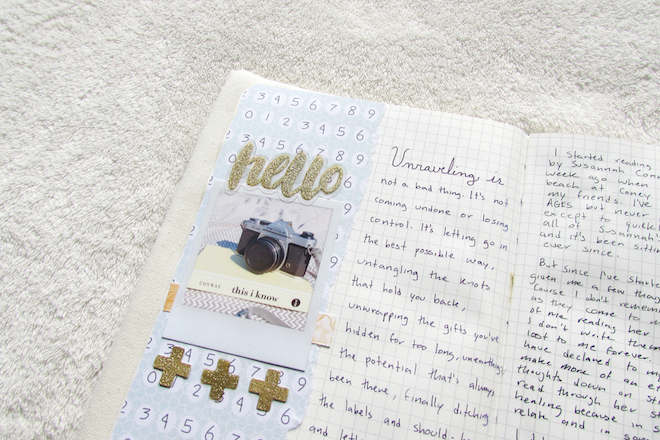 3 4 5 6 7 8 9
0 1 2 3 4 5 6
hello
CONWAY
this i know
Unraveling is
not a bad thing. It's not
coming undone or losing
control. It's letting go in
the best possible way,
untangling the knots
that hold you back,
unwrapping the gifts you've
hidden for too long, unearthing
the potential that's always
been there, finally ditching
the labels and should-
I started reading
by Susannah Con
week ago when
beach at Coney
my friends. I've
AGES but never
except to quick
all of Susannah's
and it's been sittin
ever since.
But since I've starte
given me a few thoug
course I don't rememb
as they come to m
of me reading her
I don't write them
lost to me forever.
have declared to my
make more of an e
thoughts down on
read through her
healing because in s
relate and in